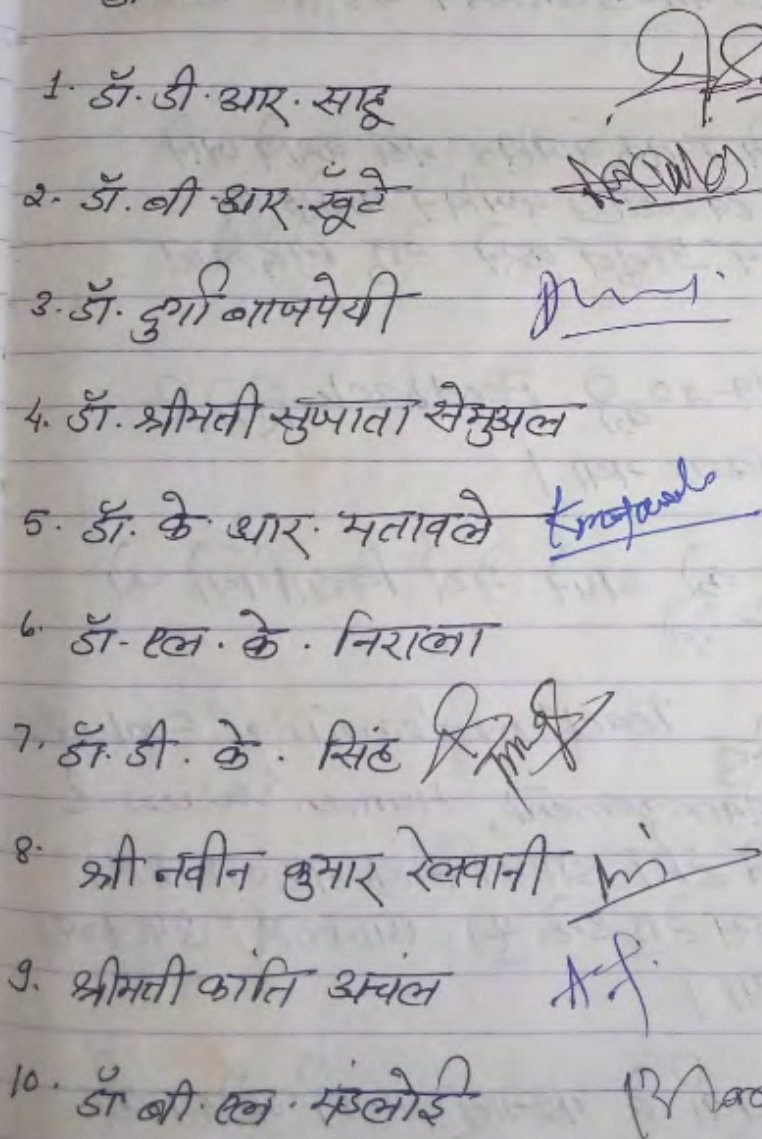 1. डॉ. डी. आर. साहू
2. डॉ. बी. आर. खूँटे
3. डॉ. दुर्गा बाजपेयी
4. डॉ. श्रीमती सुजाता सेमुअल
5. डॉ. के. आर. मतावले
6. डॉ. एल. के. निराला
7. डॉ. डी. के. सिंह
8. श्री नवीन कुमार रेलवानी
9. श्रीमती कांति अंचल
10. डॉ बी. एल. मंडलोई